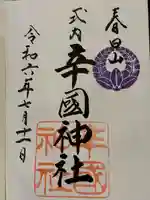 春日山
式内
辛國神社
令和六年七月十一日
辛國神社